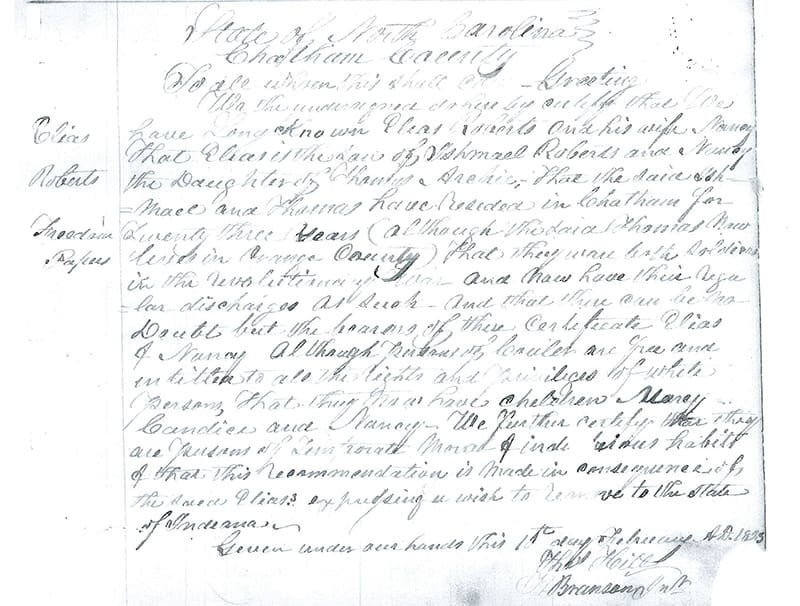 State of North Carolina
Chatham County
To all whom this shall Greeting
We the undersigned do hereby certify that We
Elias
have Long Known Elias Roberts and his wife Nancy
That Elias is the son of Ishmael Roberts and Nancy
Roberts
the Daughter of Thomas Archie, - That the said Ish-
=mael and Thomas have resided in Chatham for
Freedom
Twenty three years (although the said Thomas Now
Papers
lives in Orange County) That they ware both Soldiers
in the revolutionary War and Now have their regu
=lar discharges as such - and that there can be no
Doubt but the bearers of this Certificate Elias
& Nancy Although persons of Couler are free and
intitled to all the rights and priviliges of white
persons, That they Now have children Mary
Candice and Nancy We further certify that they
are persons of Temprate Moral & habits
& that this recommendation is made in consequence of
the said Elias expressing a wish to remove to the State
of Indiana
Given under our hands this day February A.D. 1823
Thos Hill
Branson